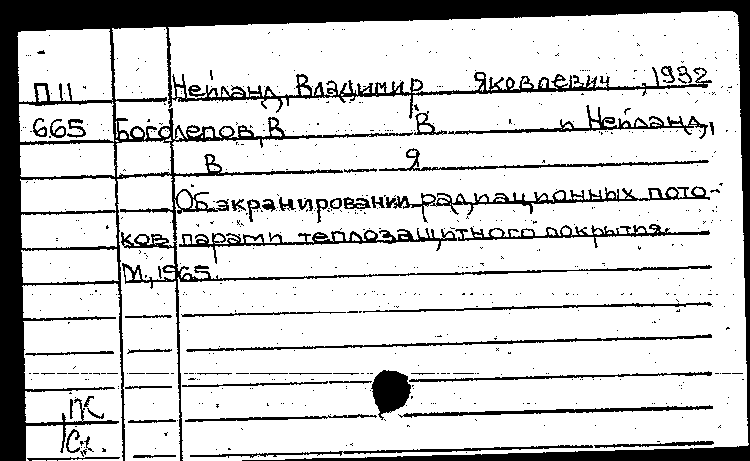 П11 Нейланд, Владимир Яковлевич, 1932
665 Боголепов, В В и Нейланд,
В Я
Об экранировании радиационных пото-
ков парами теплозащитного покрытия.
М., 1965.